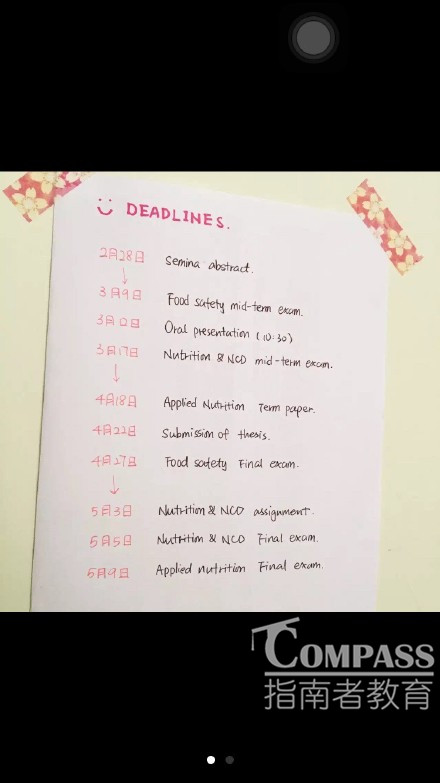 DEADLINES.
2月28日 Semina abstract.
3月9日 Food safety mid-term exam.
3月12日 Oral presentation (10:30)
3月17日 Nutrition & NCD mid-term exam.
4月18日 Applied Nutrition Term paper.
4月22日 Submission of thesis.
4月27日 Food safety Final exam.
5月3日 Nutrition & NCD assignment.
5月5日 Nutrition & NCD Final exam.
5月9日 Applied nutrition Final exam.
COMPASS
指南者教育